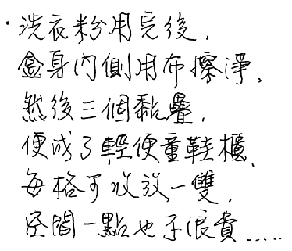 ·洗衣粉用完後,
盒身內側用布擦淨,
然後三個黏疊,
便成了輕便童鞋櫃,
每格可收放一雙,
空間一點也不浪費……